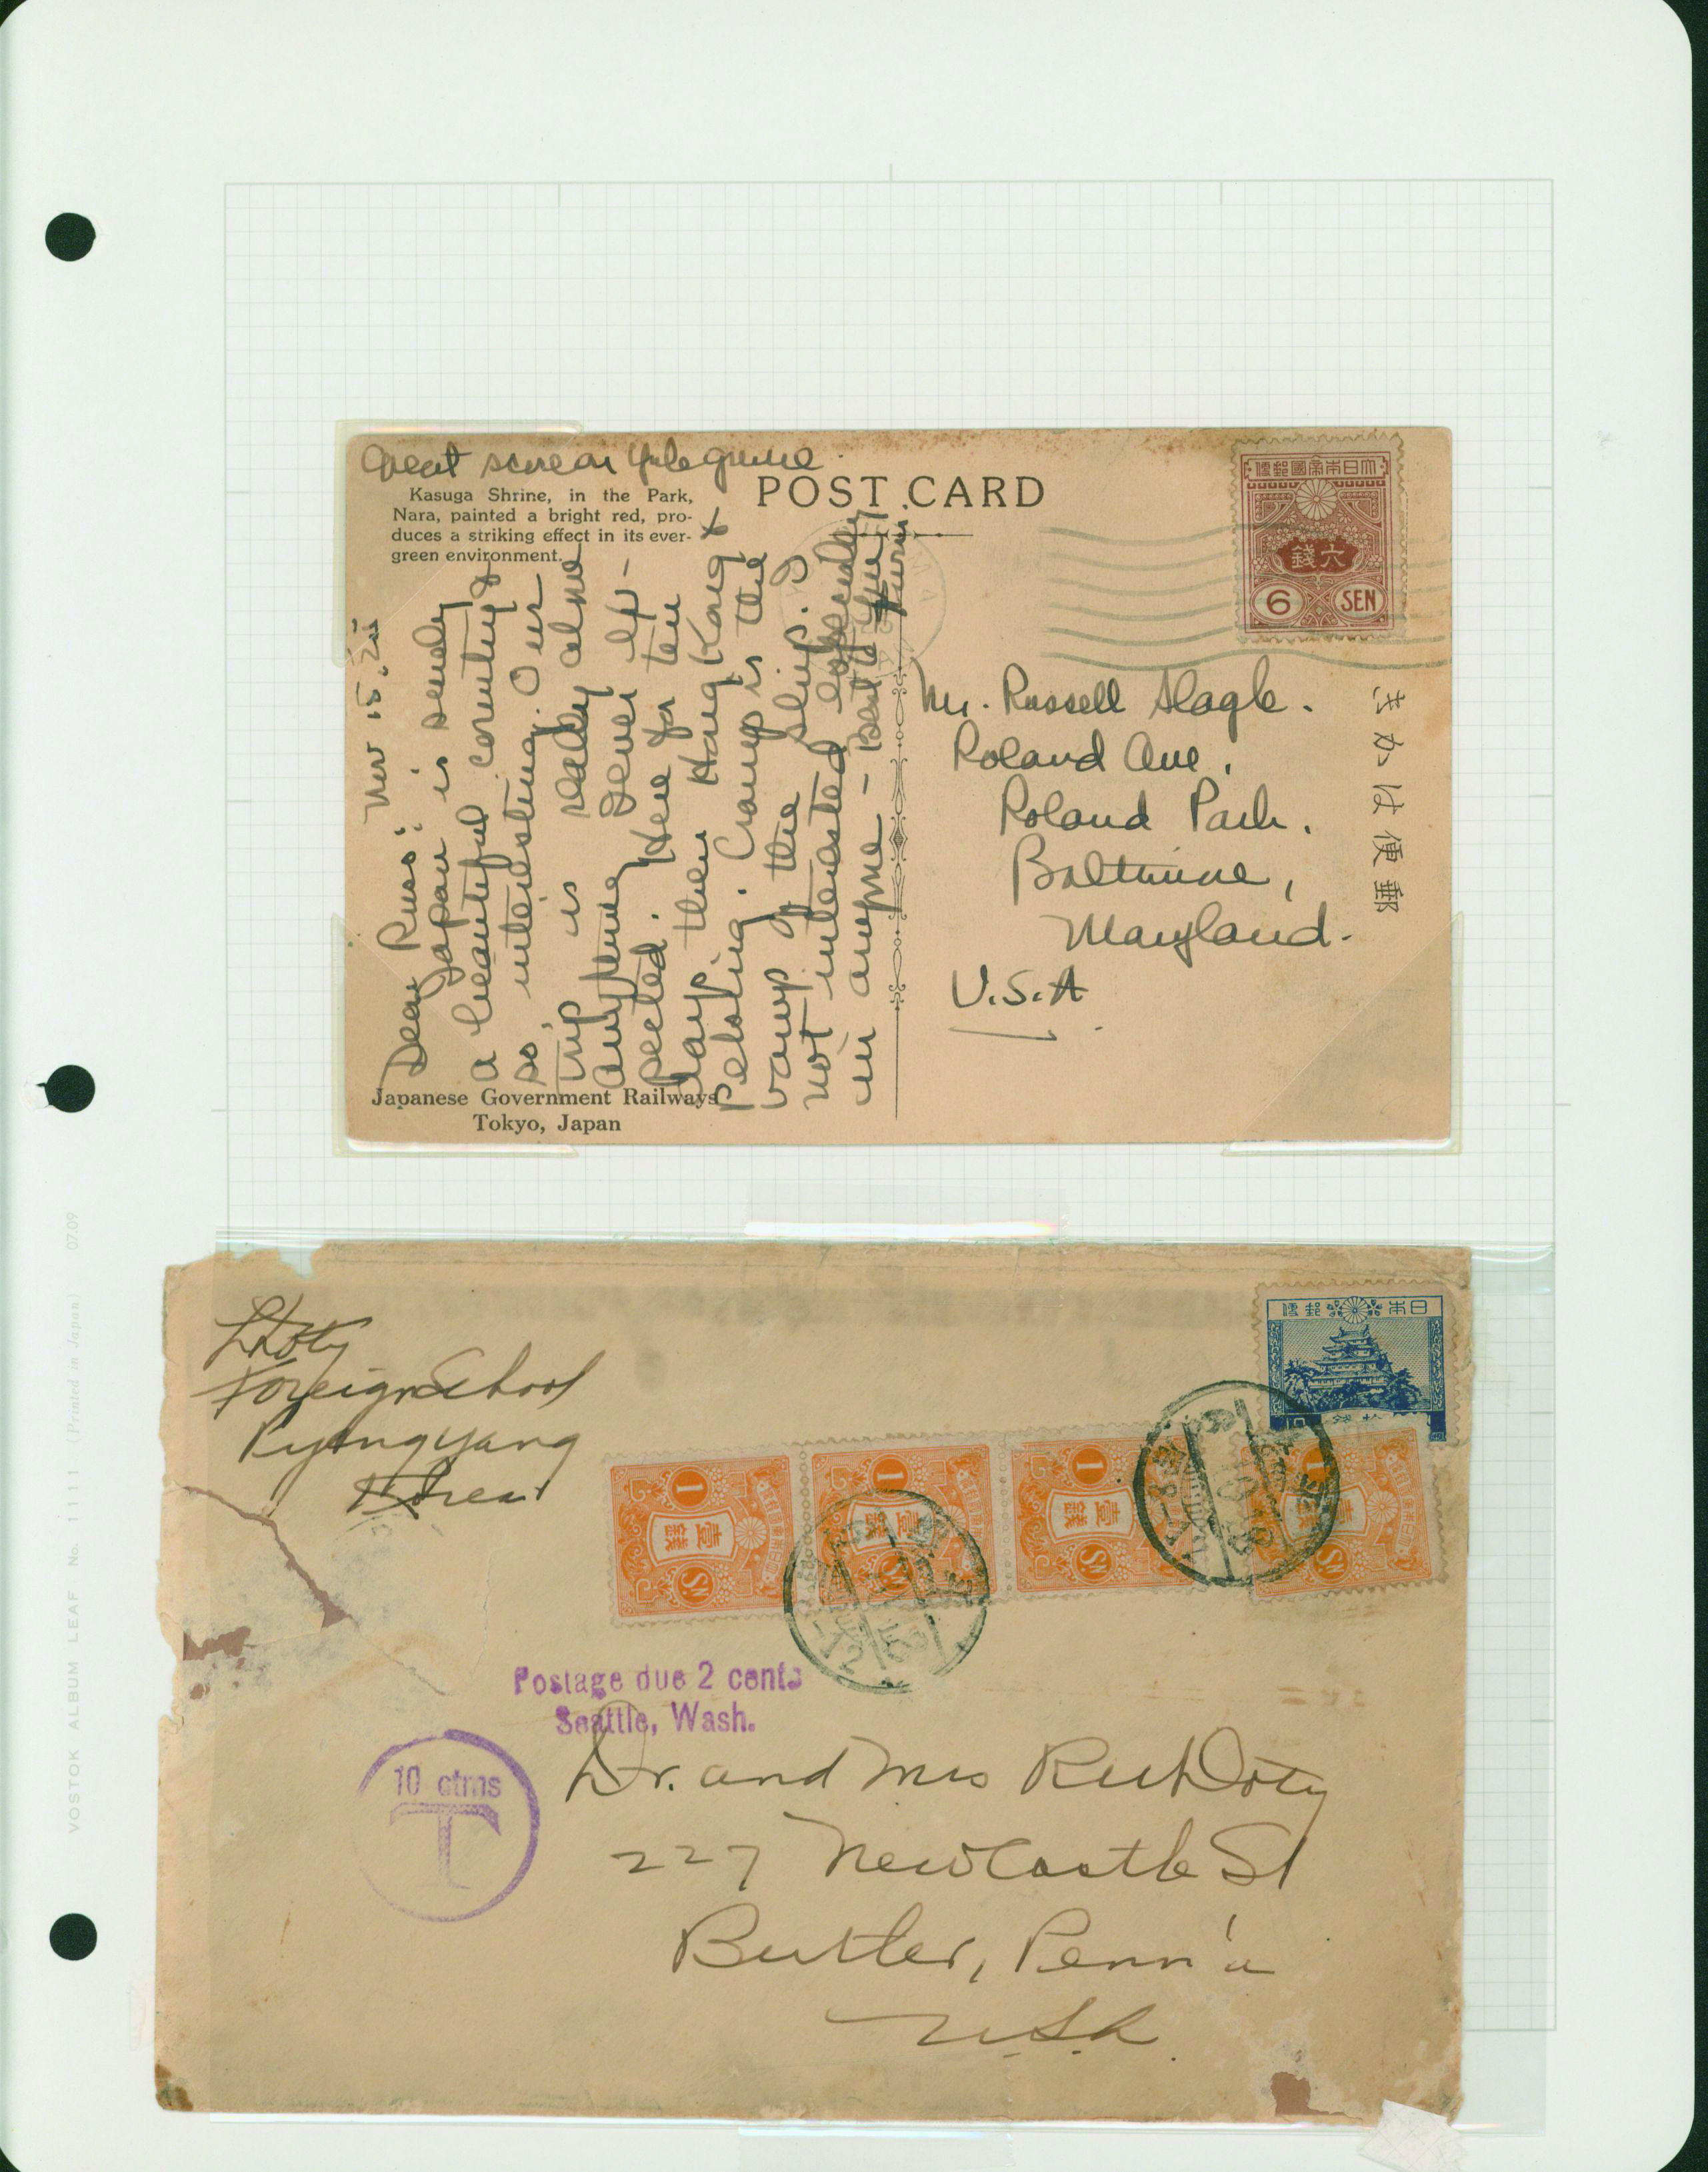 Kasuga Shrine, in the Park,
Nara, painted a bright red, pro-
duces a striking effect in its ever-
green environment.
POST CARD
大日本帝國郵便
六錢
6 SEN
Nov 15.
Dear Russ:
Japan is
a beautiful country &
so interesting. Our
trip is really
anything
pected. Here for ten
days then Hong Kong &
Peloting. Cramp is the
vamp of the ship.
not interested especially
in anyone - Best to you
Japanese Government Railways
Tokyo, Japan
Mr. Russell Slagle.
Roland Ave.
Roland Park.
Baltimore,
Maryland.
U.S.A.
きかは便郵
日本郵便
Foreign School
Pyengyang
Korea
1 壹錢 Sn
1 壹錢 Sn
1 壹錢 Sn
1 Sn
Postage due 2 cents
Seattle, Wash.
10 ctms
T
Dr. and Mrs Doty
227 New Castle St
Butler, Penn'a
U.S.A.
VOSTOK ALBUM LEAF No. 1111 (Printed in Japan) 0709